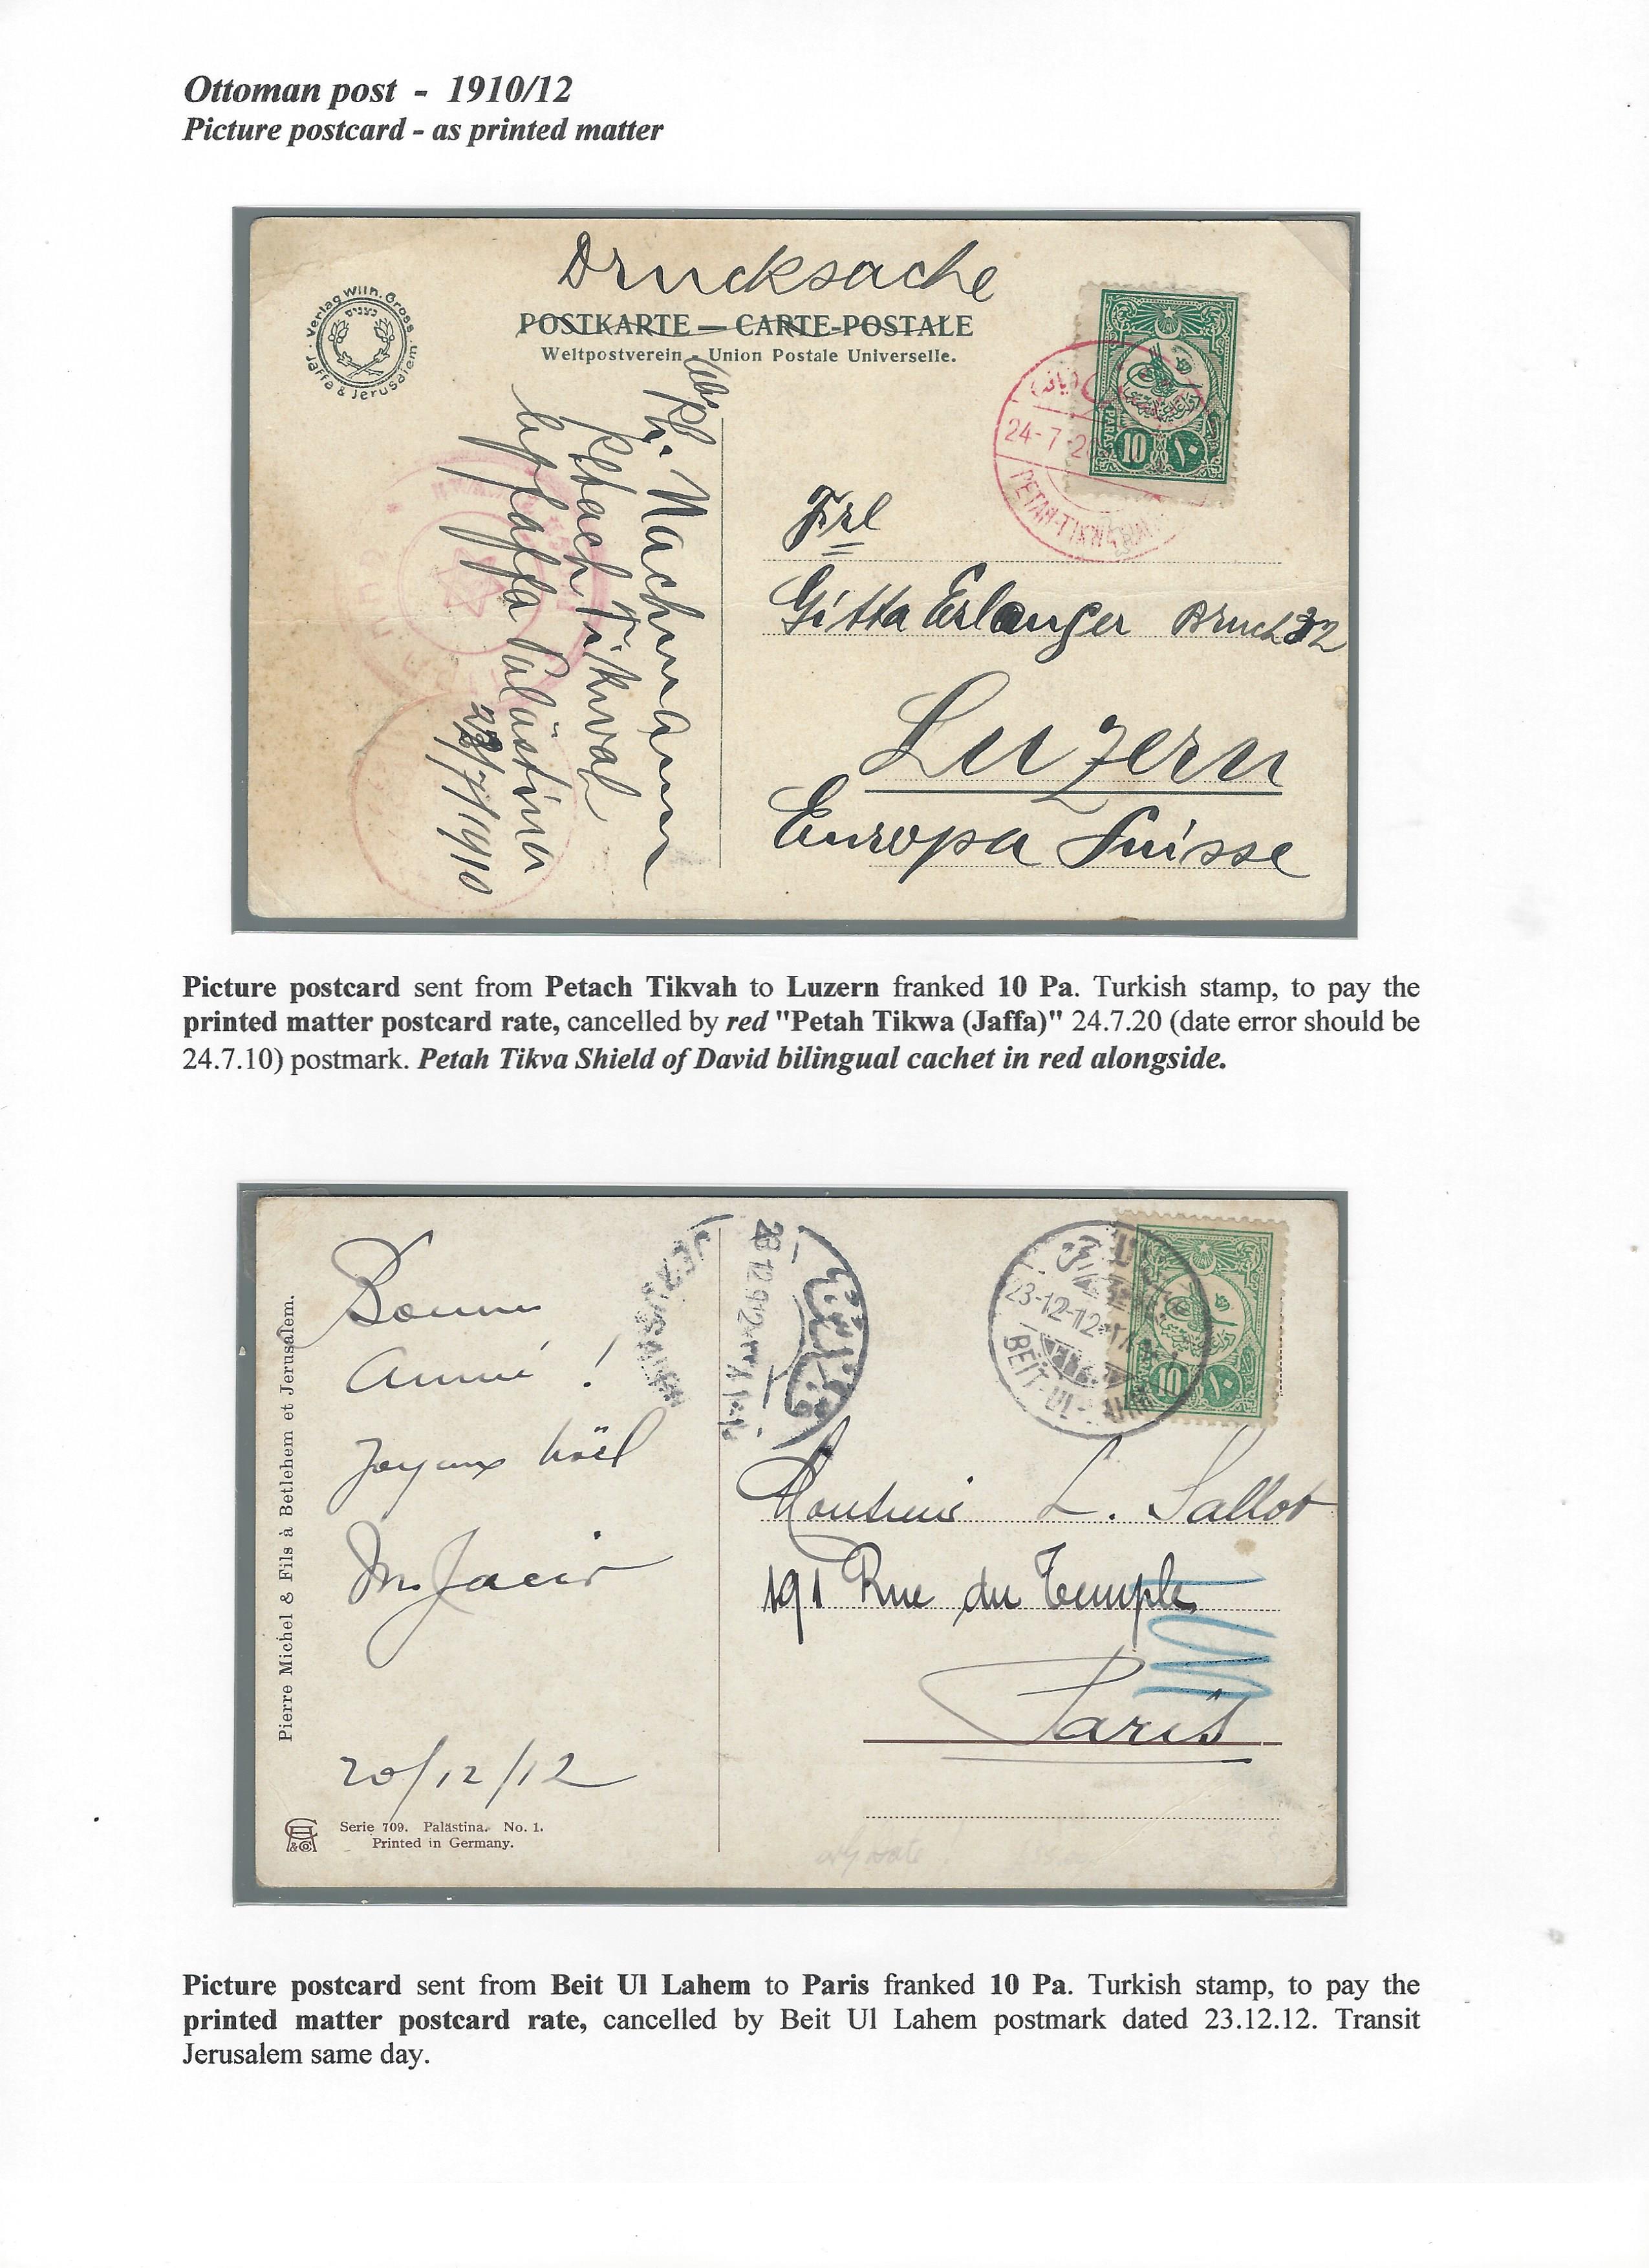 Ottoman post - 1910/12
Picture postcard - as printed matter
Drucksache
POSTKARTE — CARTE-POSTALE
Weltpostverein - Union Postale Universelle.
Verlag Wilh. Gross
Jaffa & Jerusalem
PARAS 10 ١٠
24-7-20
PETAH-TIKWA
Abs
Ph. Nachmann
Petach Tikwah
bei Jaffa Palästina
23/7/1910
Frl
Gitta Erlanger Bruchst 32
Luzern
Europa Suisse
Picture postcard sent from Petach Tikvah to Luzern franked 10 Pa. Turkish stamp, to pay the
printed matter postcard rate, cancelled by red "Petah Tikwa (Jaffa)" 24.7.20 (date error should be
24.7.10) postmark. Petah Tikva Shield of David bilingual cachet in red alongside.
Pierre Michel & Fils à Betlehem et Jerusalem.
Bonne
année !
Joyeux Noël
M. Jacir
20/12/12
Serie 709. Palästina. No. 1.
Printed in Germany.
JERUSALEM
12.912
23-12-12
BEIT-UL-LAHM
10 ١٠
Monsieur L. Sallot
191 Rue du Temple
Paris
Picture postcard sent from Beit Ul Lahem to Paris franked 10 Pa. Turkish stamp, to pay the
printed matter postcard rate, cancelled by Beit Ul Lahem postmark dated 23.12.12. Transit
Jerusalem same day.